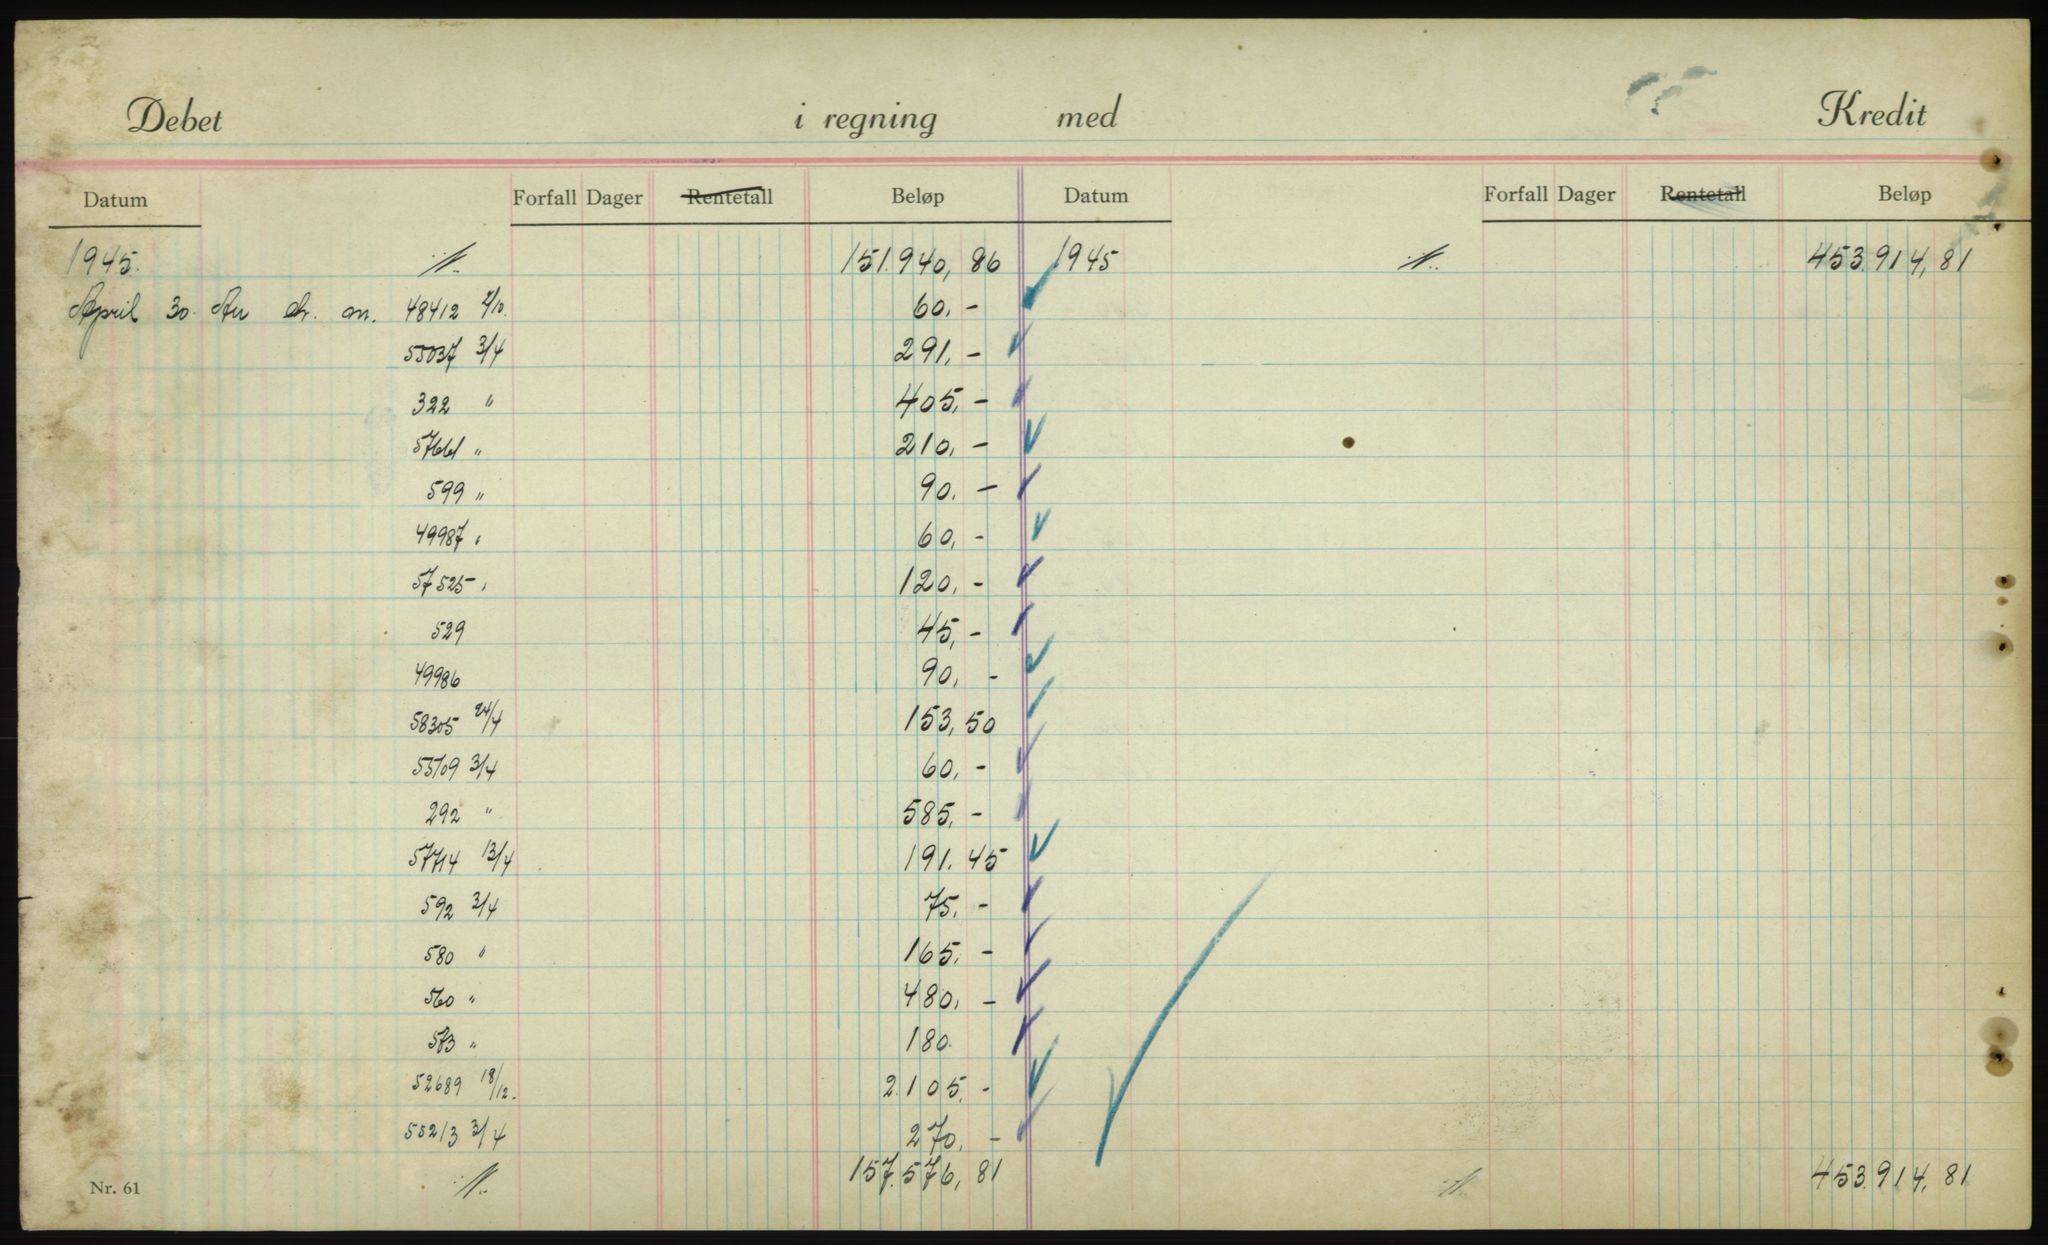 Debet i regning med Kredit
Datum Forfall Dager Rentetall Beløp Datum Forfall Dager Rentetall Beløp
1945. 151.940,86 1945 453.914,81
April 30. An ch. an. 48412 2/10. 60,-
55037 3/4 291,-
322 " 405,-
57661 " 210,-
599 " 90.-
49987 " 60,-
57525 " 120,-
529 45,-
49986 90,-
58305 24/4 153,50
55109 3/4 60,-
292 " 585,-
57714 13/4 191.45
592 3/4 75.-
580 " 165.-
560 " 480,-
583 " 180.
52689 18/12. 2.105,-
55213 3/4 270,-
157.576,81 453.914,81
Nr. 61